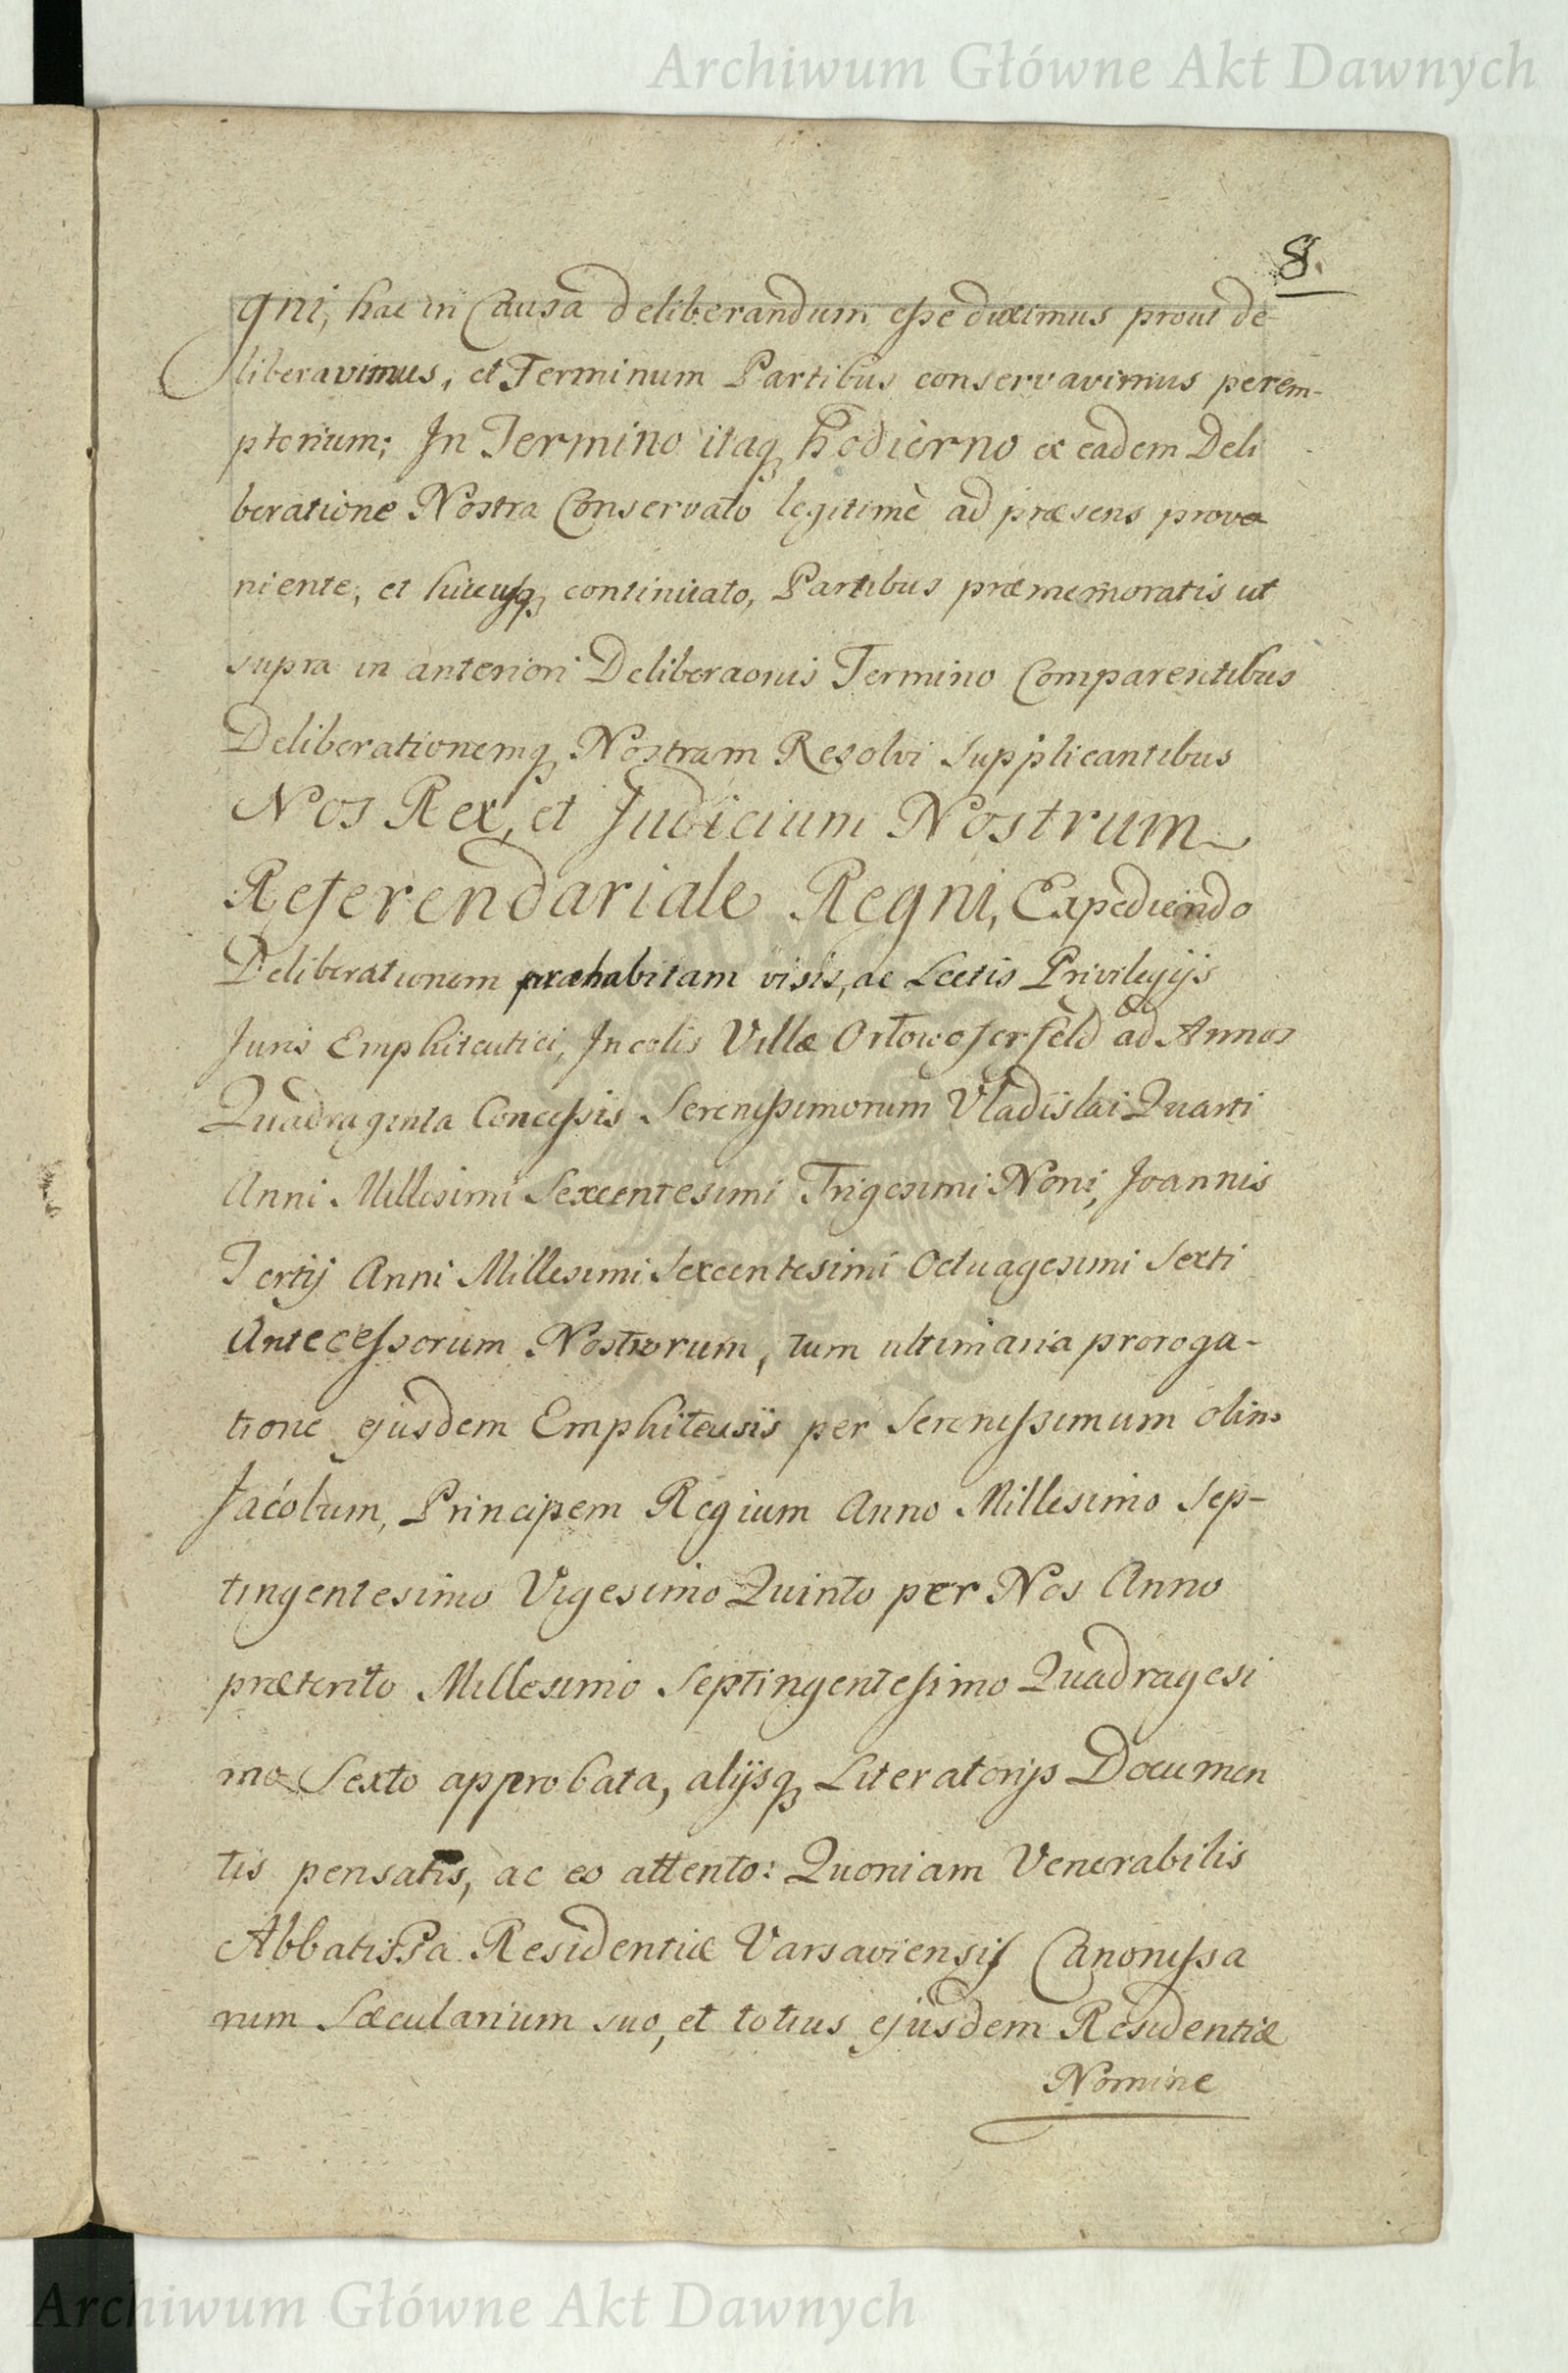 Archiwum Główne Akt Dawnych
8.
gni, hac in Causa deliberandum esse duximus prout de-
liberavimus, et Terminum Partibus conservavimus perem-
ptorium; In Termino itaq hodierno ex eadem Deli
beratione Nostra Conservato legitimè ad præsens prove
niente, et hucusq continuato, Partibus præmemoratis ut
supra in anteriori Deliberaonis Termino Comparentibus
Deliberationemq Nostram Resolvi Supplicantibus
Nos Rex, et Judicium Nostrum
Referendariale Regni, Expediendo
Deliberationem præhabitam visis, ac Lectis Privilegijs
Juris Emphiteutici, Incolis Villæ Ortowoferfeld ad Annos
Quadraginta Concessis Serenissimorum Vladislai Quarti
Anni Millesimi Sexcentesimi Trigesimi Noni, Joannis
Tertij Anni Millesimi Sexcentesimi Octuagesimi Sexti
Antecessorum Nostrorum, tum ultimaria proroga-
tione ejusdem Emphiteusis per Serenissimum olim
Jacobum, Principem Regium Anno Millesimo Sep-
tingentesimo Vigesimo Quinto per Nos Anno
præterito Millesimo Septingentesimo Quadragesi
mo Sexto approbata, alijsq Literatorijs Documen
tis pensatis, ac eo attento: Quoniam Venerabilis
Abbatissa Residentiæ Varsaviensis Canonissa
rum Sæcularium suo, et totius ejusdem Residentiæ
Nomine
Archiwum Główne Akt Dawnych